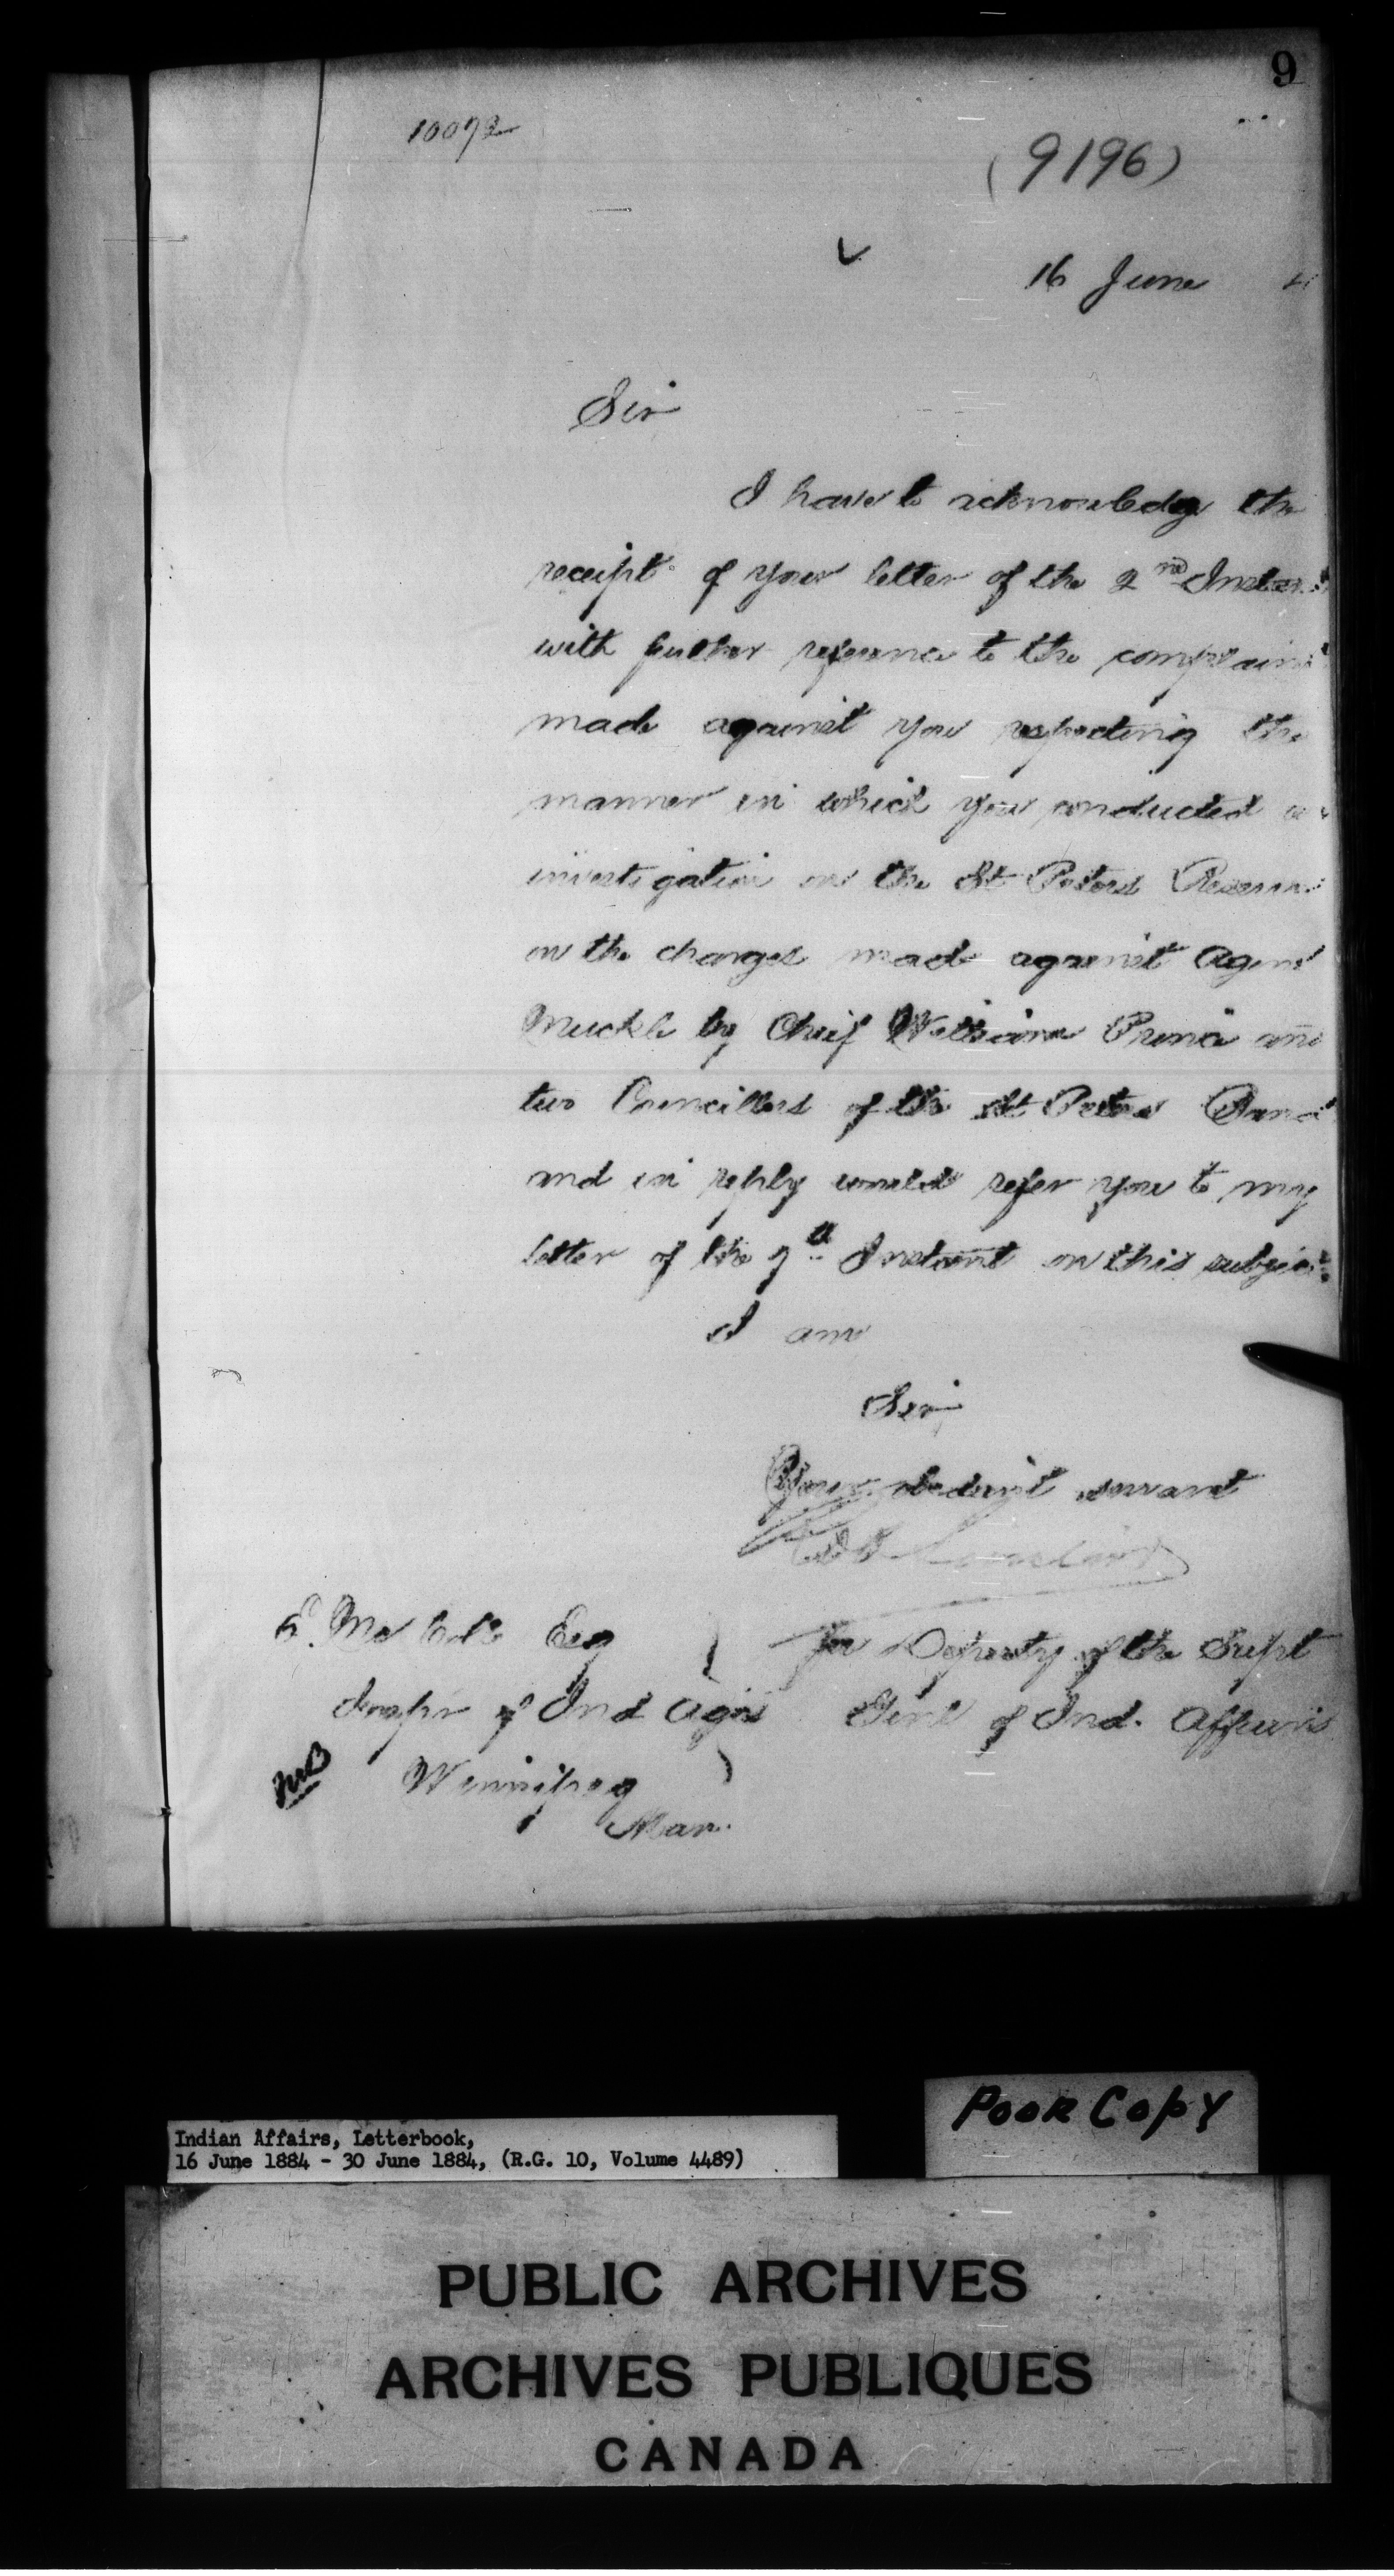 9
10072
(9196)
16 June 4
Sir
I have to acknowledge the
receipt of your letter of the 2nd Instant
with further reference to the complaint
made against you respecting the
manner in which you conducted an
investigation on the St Peters Reserve
on the charges made against Agent
Muckle by Chief William Prince and
two Councillors of the St Peters Band
and in reply would refer you to my
letter of the 7th Instant on this subject
I am
Sir
Your obedient servant
E. McColl Esq
for Deputy of the Supt
Inspr of Ind Agcs
Genl of Ind. Affairs
Winnipeg
Man.
Poor Copy
Indian Affairs, Letterbook,
16 June 1884 - 30 June 1884, (R.G. 10, Volume 4489)
PUBLIC ARCHIVES
ARCHIVES PUBLIQUES
CANADA